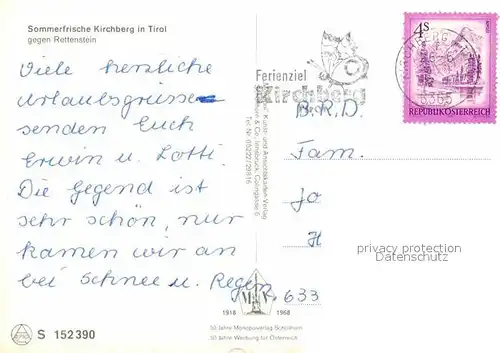 Sommerfrische Kirchberg in Tirol
gegen Rettenstein
Viele herzliche
Urlaubsgrüsse
senden Euch
Erwin u. Lotti.
Die Gegend ist
sehr schön, nur
kamen wir an
bei Schnee u. Regen.
S 152390
Ferienziel
Kirchberg
4S
REPUBLIK ÖSTERREICH
6365
B.R.D.
Fam.
Jo
H
privacy protection
Datenschutz
633
1918 1968
50 Jahre Monopolverlag Schöllhorn
50 Jahre Werbung für Österreich
Kunst- und Ansichtskarten-Verlag
& Co., Innsbruck
Tel. Nr. 05222/29816